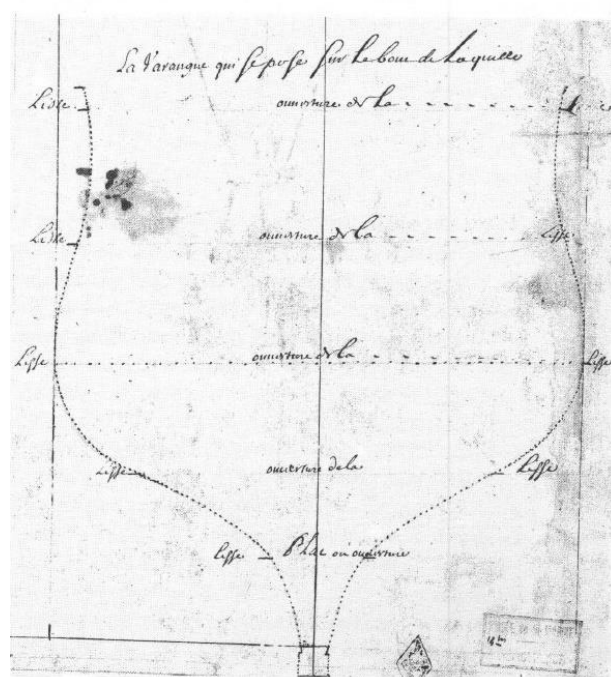 La Varangue qui se pose sur le bout de la quille
Lisse ouverture de la
Lisse ouverture de la Lisse
Lisse ouverture de la Lisse
Lisse ouverture de la Lisse
Lisse Plac ou ouverture